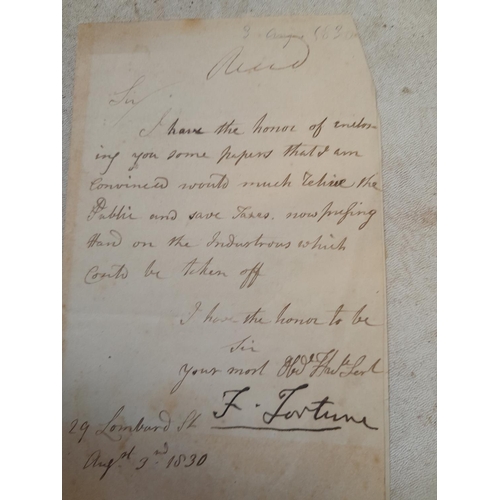 3 Augt 1830
Read
Sir
I have the honor of enclos-
ing you some papers that I am
Convinced would much relieve the
Public and save Taxes. now pressing
Hard on the Industrous which
Could be taken off
I have the honor to be
Sir
your most Obdt Hble Servt
F. Fortune
29 Lombard St
Augst 3rd 1830